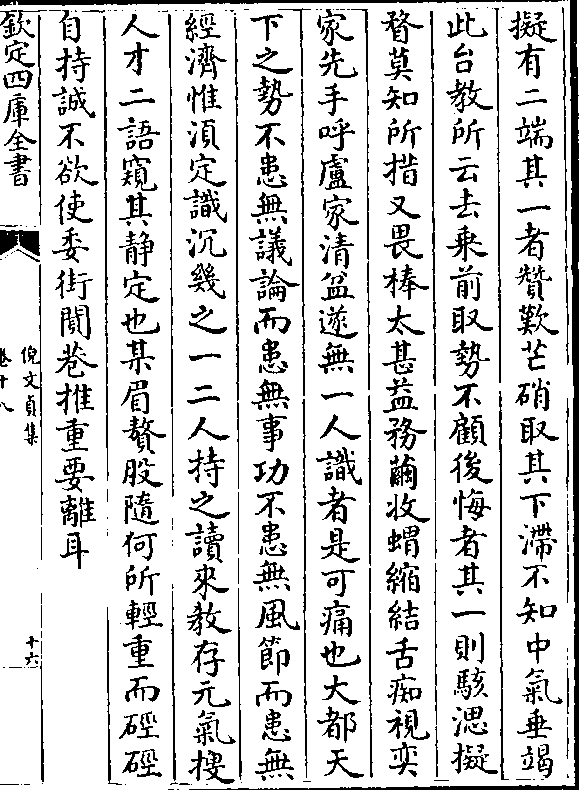 擬有二端其一者贊歎芒硝取其下滯不知中氣垂竭
此台教所云去乘前取勢不顧後悔者其一則駭漫擬
瞀莫知所措又畏棒太甚益務繭收蝟縮結舌痴視奕
家先手呼盧家清盆遂無一人識者是可痛也大都天
下之勢不患無議論而患無事功不患無風節而患無
經濟惟湏定識沉幾之一二人持之讀來教存元氣搜
人才二語窺其静定也某眉贅股隨何所輕重而硜硜
自持誠不欲使委街閧巷推重要離耳
欽定四庫全書
倪文貞集
卷十八
十六